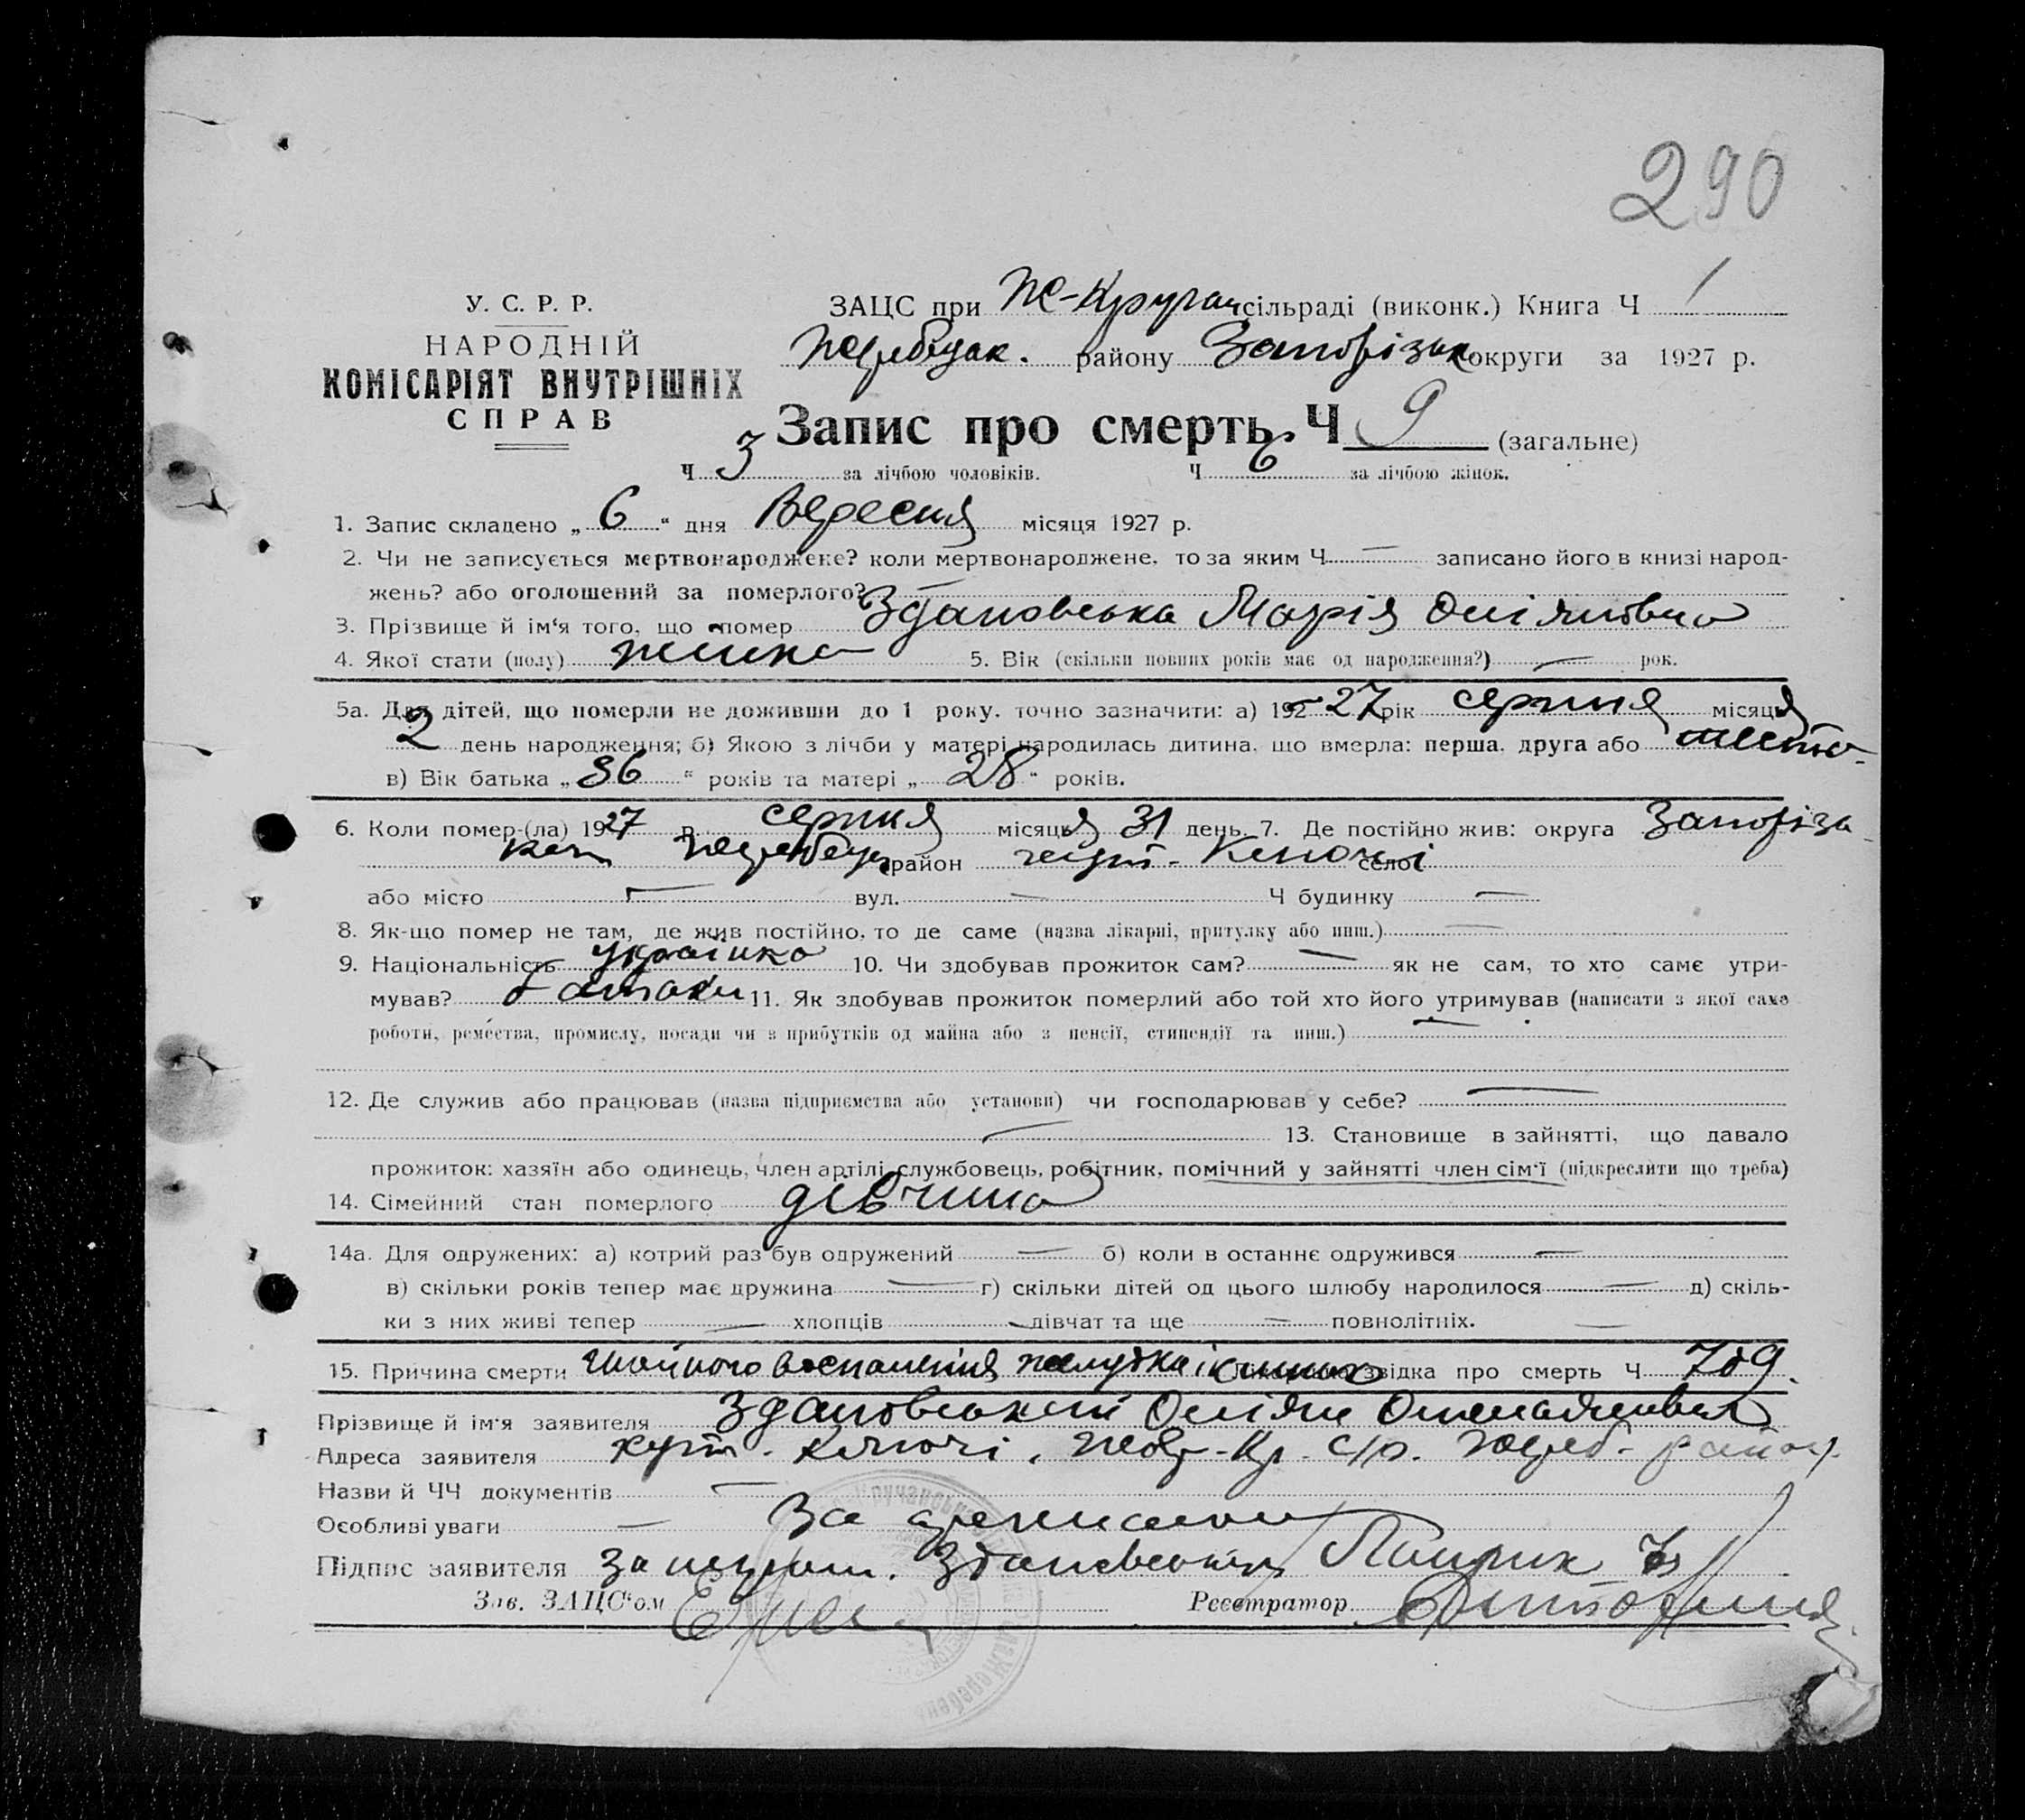 290
У. С. Р. Р.
НАРОДНІЙ
КОМІСАРІЯТ ВНУТРІШНІХ
СПРАВ
ЗАЦС при Ж-Кручан сільраді (виконк.) Книга Ч 1
Жеребецьк. району Запорізьк округи за 1927 р.
Запис про смерть Ч 9 (загальне)
Ч 3 за лічбою чоловіків. Ч 6 за лічбою жінок.
1. Запис складено „ 6 “ дня Вересня місяця 1927 р.
2. Чи не записується мертвонароджене? коли мертвонароджене, то за яким Ч — записано його в книзі народ-
жень? або оголошений за померлого? —
3. Прізвище й ім‘я того, що помер Здановська Марія
4. Якої стати (полу) жінка 5. Вік (скільки повних років має од народження?) — рок.
5а. Для дітей, що померли не доживши до 1 року, точно зазначити: а) 192 27 рік серпня місяця
2 день народження; б) Якою з лічби у матері народилась дитина, що вмерла: перша, друга або шоста
в) Вік батька „ 36 “ років та матері „ 28 “ років.
6. Коли помер-(ла) 1927 р. серпня місяця 31 день. 7. Де постійно жив: округа Запорізь
кої район хут. Ключі село
або місто — вул. — Ч будинку —
8. Як-що помер не там, де жив постійно, то де саме (назва лікарні, притулку або инш.) —
9. Національність українка 10. Чи здобував прожиток сам? — як не сам, то хто саме утри-
мував? батьки 11. Як здобував прожиток померлий або той хто його утримував (написати з якої саме
роботи, ремества, промислу, посади чи з прибутків од майна або з пенсії, стипендії та инш.) —
12. Де служив або працював (назва підприємства або установи) чи господарював у себе? —
— 13. Становище в зайнятті, що давало
прожиток: хазяїн або одинець, член артілі, службовець, робітник, помічний у зайнятті член сім‘ї (підкреслити що треба)
14. Сімейний стан померлого дівчина
14а. Для одружених: а) котрий раз був одружений — б) коли в останнє одружився —
в) скільки років тепер має дружина — г) скільки дітей од цього шлюбу народилося — д) скіль-
ки з них живі тепер — хлопців — дівчат та ще — повнолітніх. —
15. Причина смерти воспаления желудка і кишок звідка про смерть Ч 709.
Прізвище й ім‘я заявителя Здановський
Адреса заявителя хут. Ключі, Жов-Кр. с/р. Жереб. район
Назви й ЧЧ документів —
Особливі уваги —
Підпис заявителя За неграм. Здановський
Зав. ЗАЦС‘ом
Реєстратор